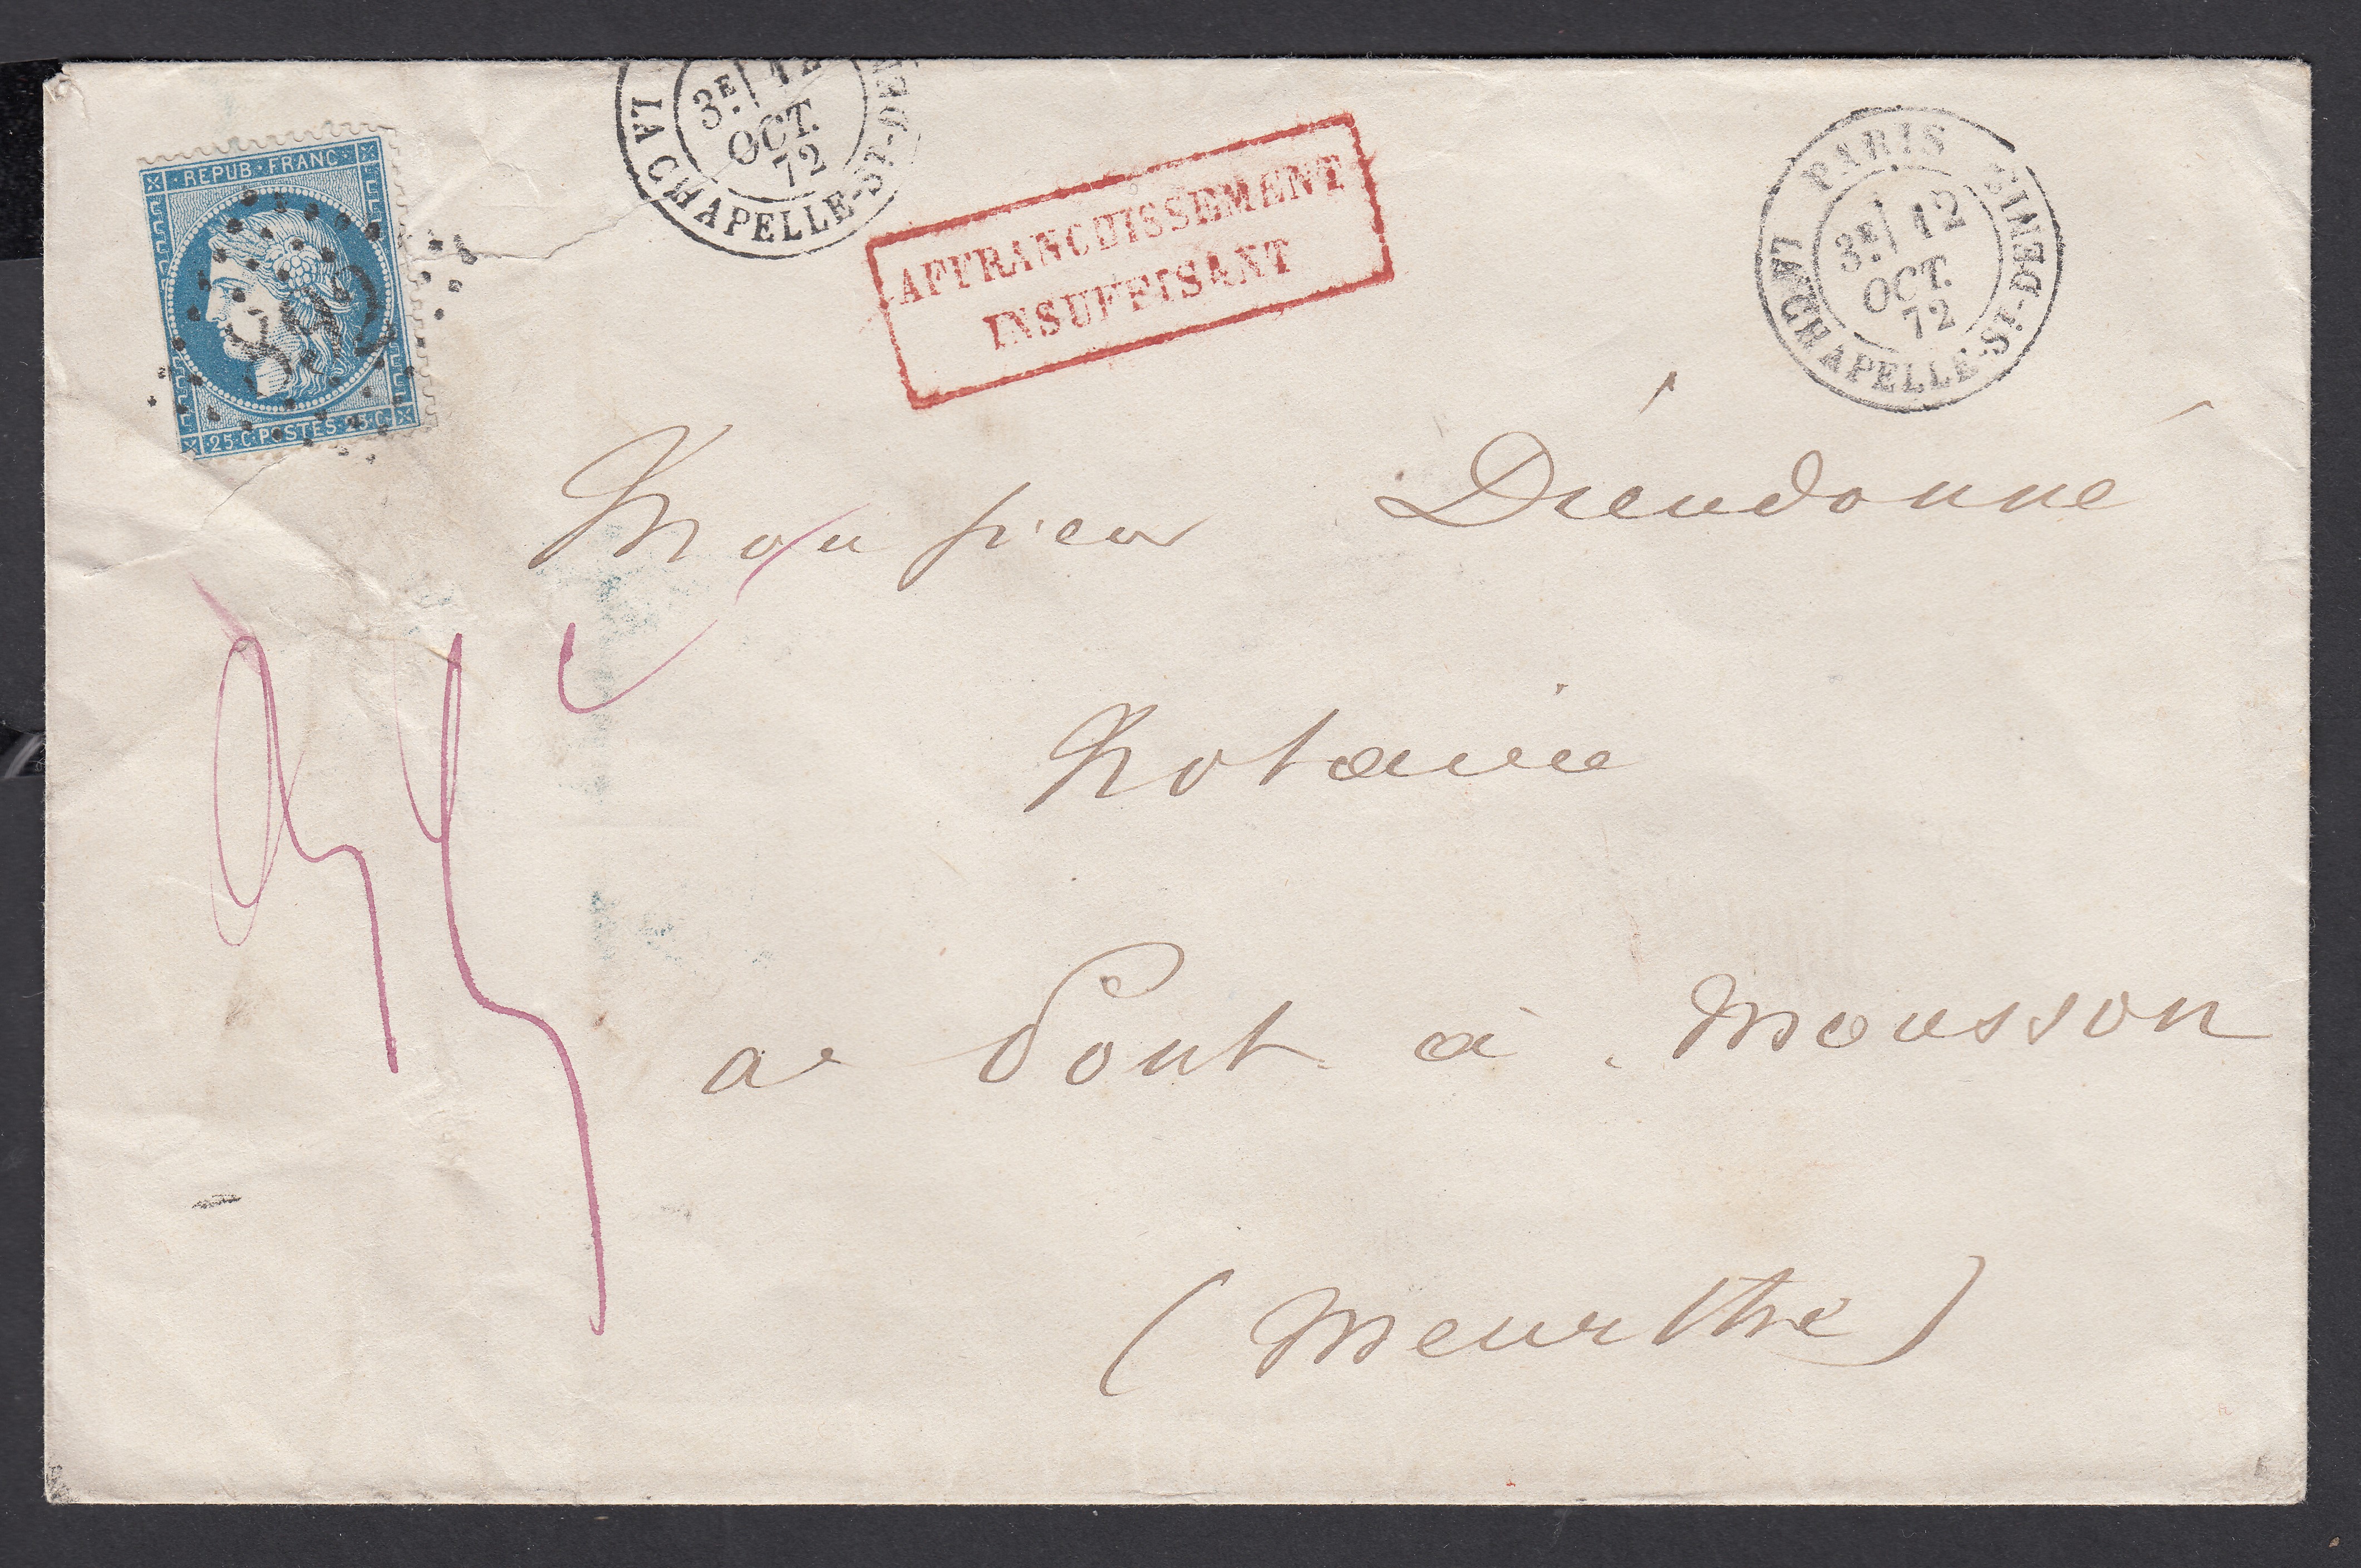 REPUB·FRANC·
25·C·POSTES·25·C·
3E 12
OCT.
72
LA CHAPELLE-ST-DE
AFFRANCHISSEMENT
INSUFFISANT
PARIS
3E 12
OCT.
72
LA CHAPELLE-ST-DENIS
Monsieur Dieudonné
Notaire
a Pont à Mousson
(Meurthe)